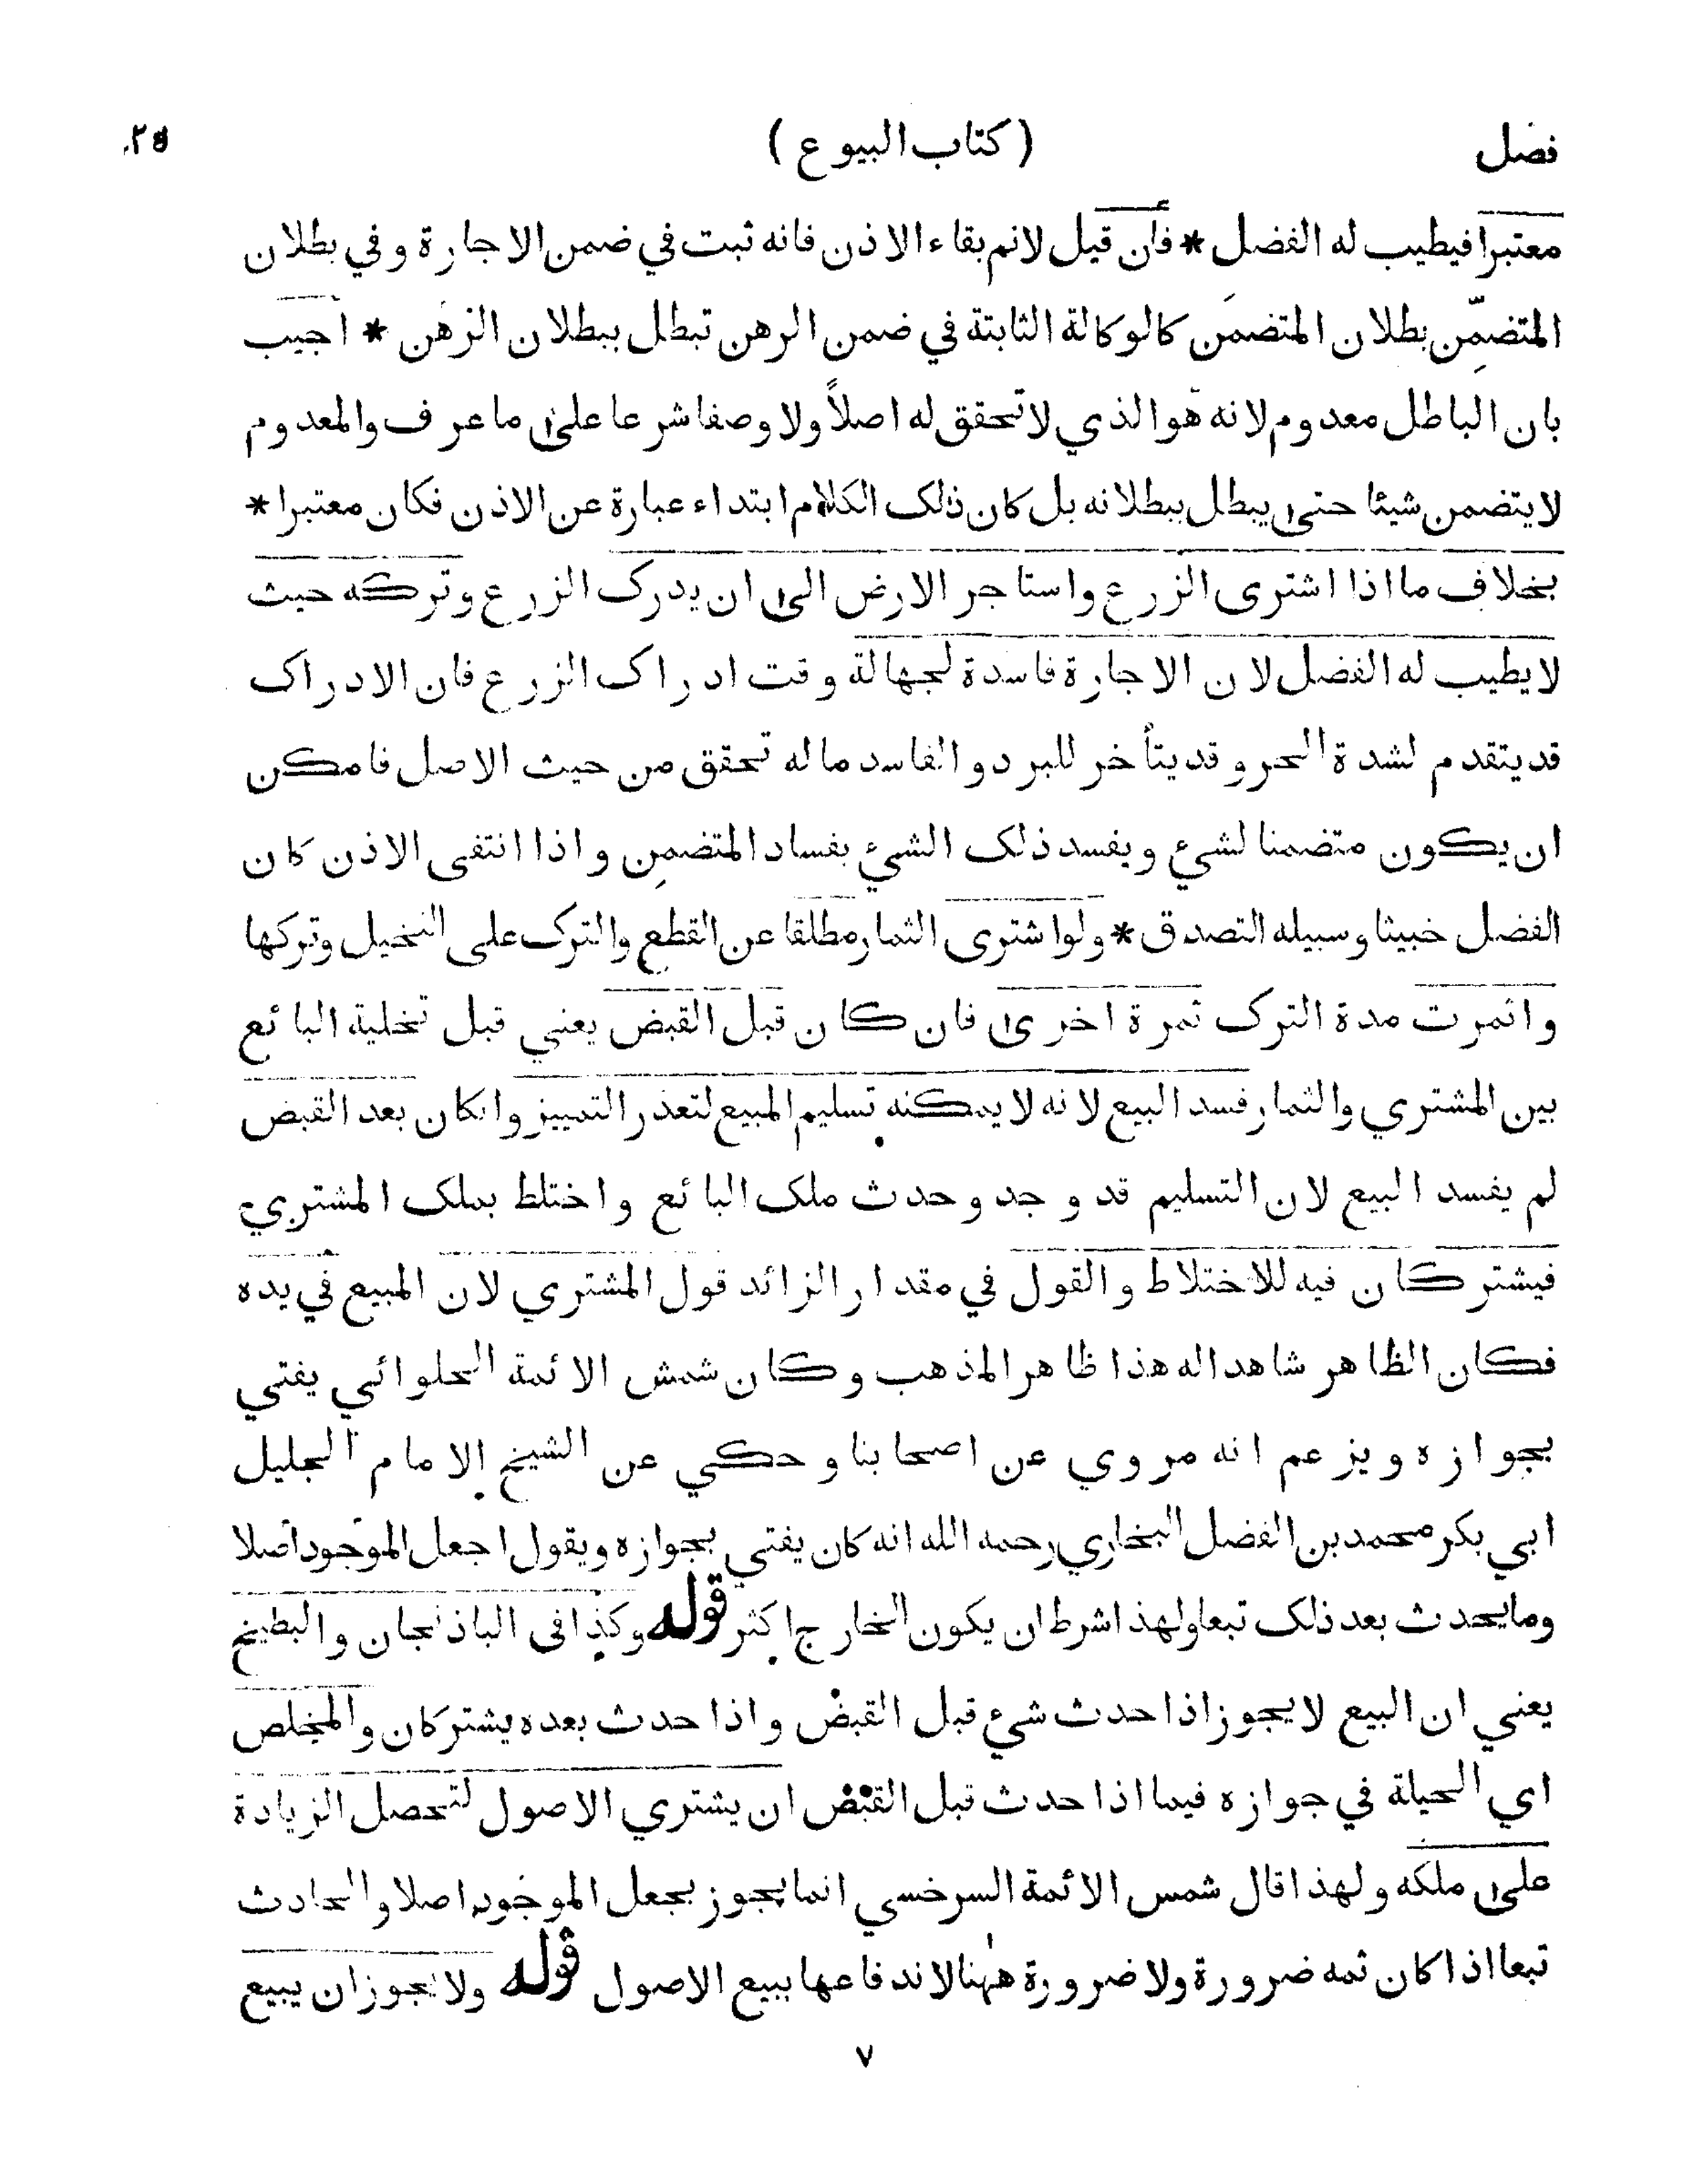 فصل ( كتاب البيوع )
معتبرا فيطيب له الفضل * فأن قيل لانم بقاء الاذن فانه ثبت في ضمن الاجارة وفي بطلان
المتضمِّن بطلان المتضمَن كالوكالة الثابتة في ضمن الرهن تبطل ببطلان الرهن * اجيب
بان الباطل معدوم لانه هو الذي لا تحقق له اصلاً ولا وصفا شرعا على ما عرف والمعدوم
لا يتضمن شيئا حتى يبطل ببطلانه بل كان ذلك الكلام ابتداء عبارة عن الاذن فكان معتبرا *
بخلاف ما اذا اشترى الزرع واستاجر الارض الى ان يدرك الزرع وتركه حيث
لا يطيب له الفضل لان الاجارة فاسدة لجهالة وقت ادراك الزرع فان الادراك
قد يتقدم لشدة الحر وقد يتأخر للبرد والفاسد ما له تحقق من حيث الاصل فامكن
ان يكون متضمنا لشيء ويفسد ذلك الشيء بفساد المتضمِن واذا انتفى الاذن كان
الفضل خبيثا وسبيله التصدق * ولو اشترى الثمار مطلقا عن القطع والترك على النخيل وتركها
واثمرت مدة الترك ثمرة اخرى فان كان قبل القبض يعني قبل تخلية البائع
بين المشتري والثمار فسد البيع لانه لا يمكنه تسليم المبيع لتعذر التمييز وانكان بعد القبض
لم يفسد البيع لان التسليم قد وجد وحدث ملك البائع واختلط بملك المشتري
فيشتركان فيه للاختلاط والقول في مقدار الزائد قول المشتري لان المبيع في يده
فكان الظاهر شاهدا له هذا ظاهر المذهب وكان شمش الائمة الحلوائي يفتي
بجوازه ويزعم انه مروي عن اصحابنا وحكي عن الشيخ الامام الجليل
ابي بكر محمد بن الفضل البخاري رحمه الله انه كان يفتي بجوازه ويقول اجعل الموجود اصلا
وما يحدث بعد ذلك تبعا ولهذا شرط ان يكون الخارج اكثر قوله وكذا في الباذنجان والبطيخ
يعني ان البيع لا يجوز اذا حدث شيء قبل القبض واذا حدث بعده يشتركان والمخلص
اي الحيلة في جوازه فيما اذا حدث قبل القبض ان يشتري الاصول لتحصل الزيادة
على ملكه ولهذا قال شمس الائمة السرخسي انما يجوز بجعل الموجود اصلا والحادث
تبعا اذا كان ثمه ضرورة ولا ضرورة ههنا لاندفاعها ببيع الاصول قوله ولا يجوز ان يبيع
٧